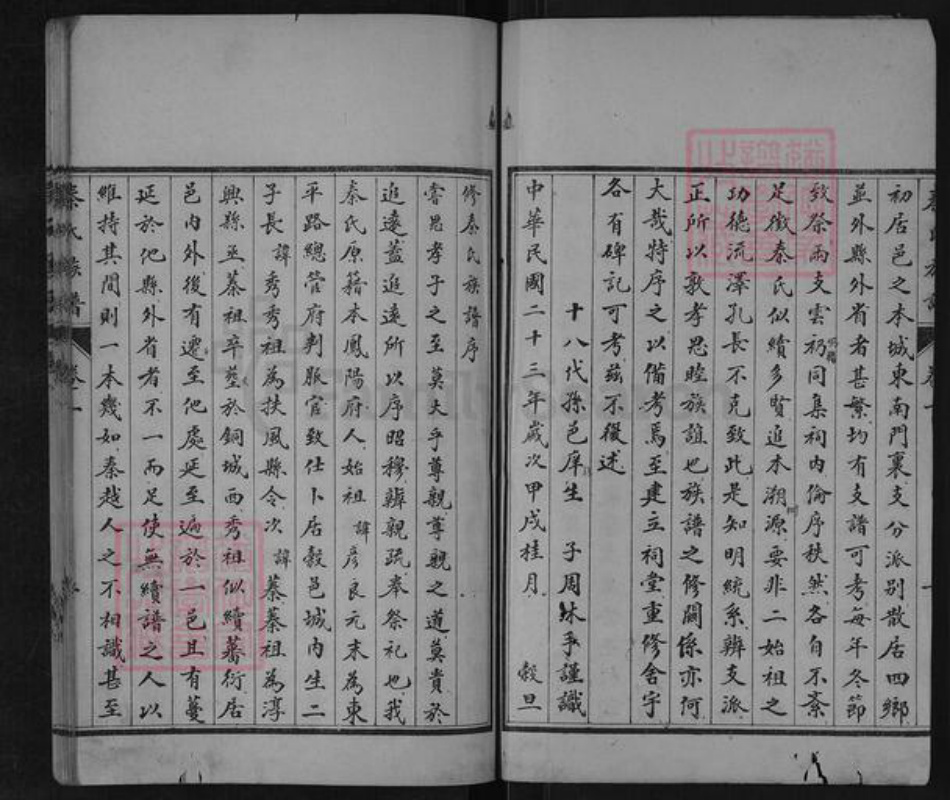 初居邑之本城東南門裏支分派别散居四鄉
並外縣外省者甚繁均有支譜可考每年冬節
致祭兩支雲礽同集祠内倫序秩然各自不紊
足徵秦氏似續多賢追本溯源要非二始祖之
功德流澤孔長不克致此是知明統系辨支派
正所以敦孝思睦族誼也族譜之修關係亦何
大哉特序之以備考焉至建立祠堂重修舍宇
各有碑記可考兹不復述
十八代孫邑庠生 子周沐手謹識
中華民國二十三年歲次甲戌桂月 穀旦
修秦氏族譜序
嘗思孝子之至莫大乎尊親尊親之道莫貴於
追遠蓋追遠所以序昭穆辨親疏奉祭祀也我
秦氏原籍本鳳陽府人始祖諱彦良元末為東
平路總管府判厭官致仕卜居穀邑城内生二
子長諱秀秀祖為扶風縣令次諱蓁蓁祖為淳
興縣丞蓁祖卒塟於銅城西秀祖似續蕃衍居
邑内外後有遷至他處延至遍於一邑且有蔓
延於他縣外省者不一而足使無續譜之人以
維持其間則一本幾如秦越人之不相識甚至
秦氏族譜 卷一